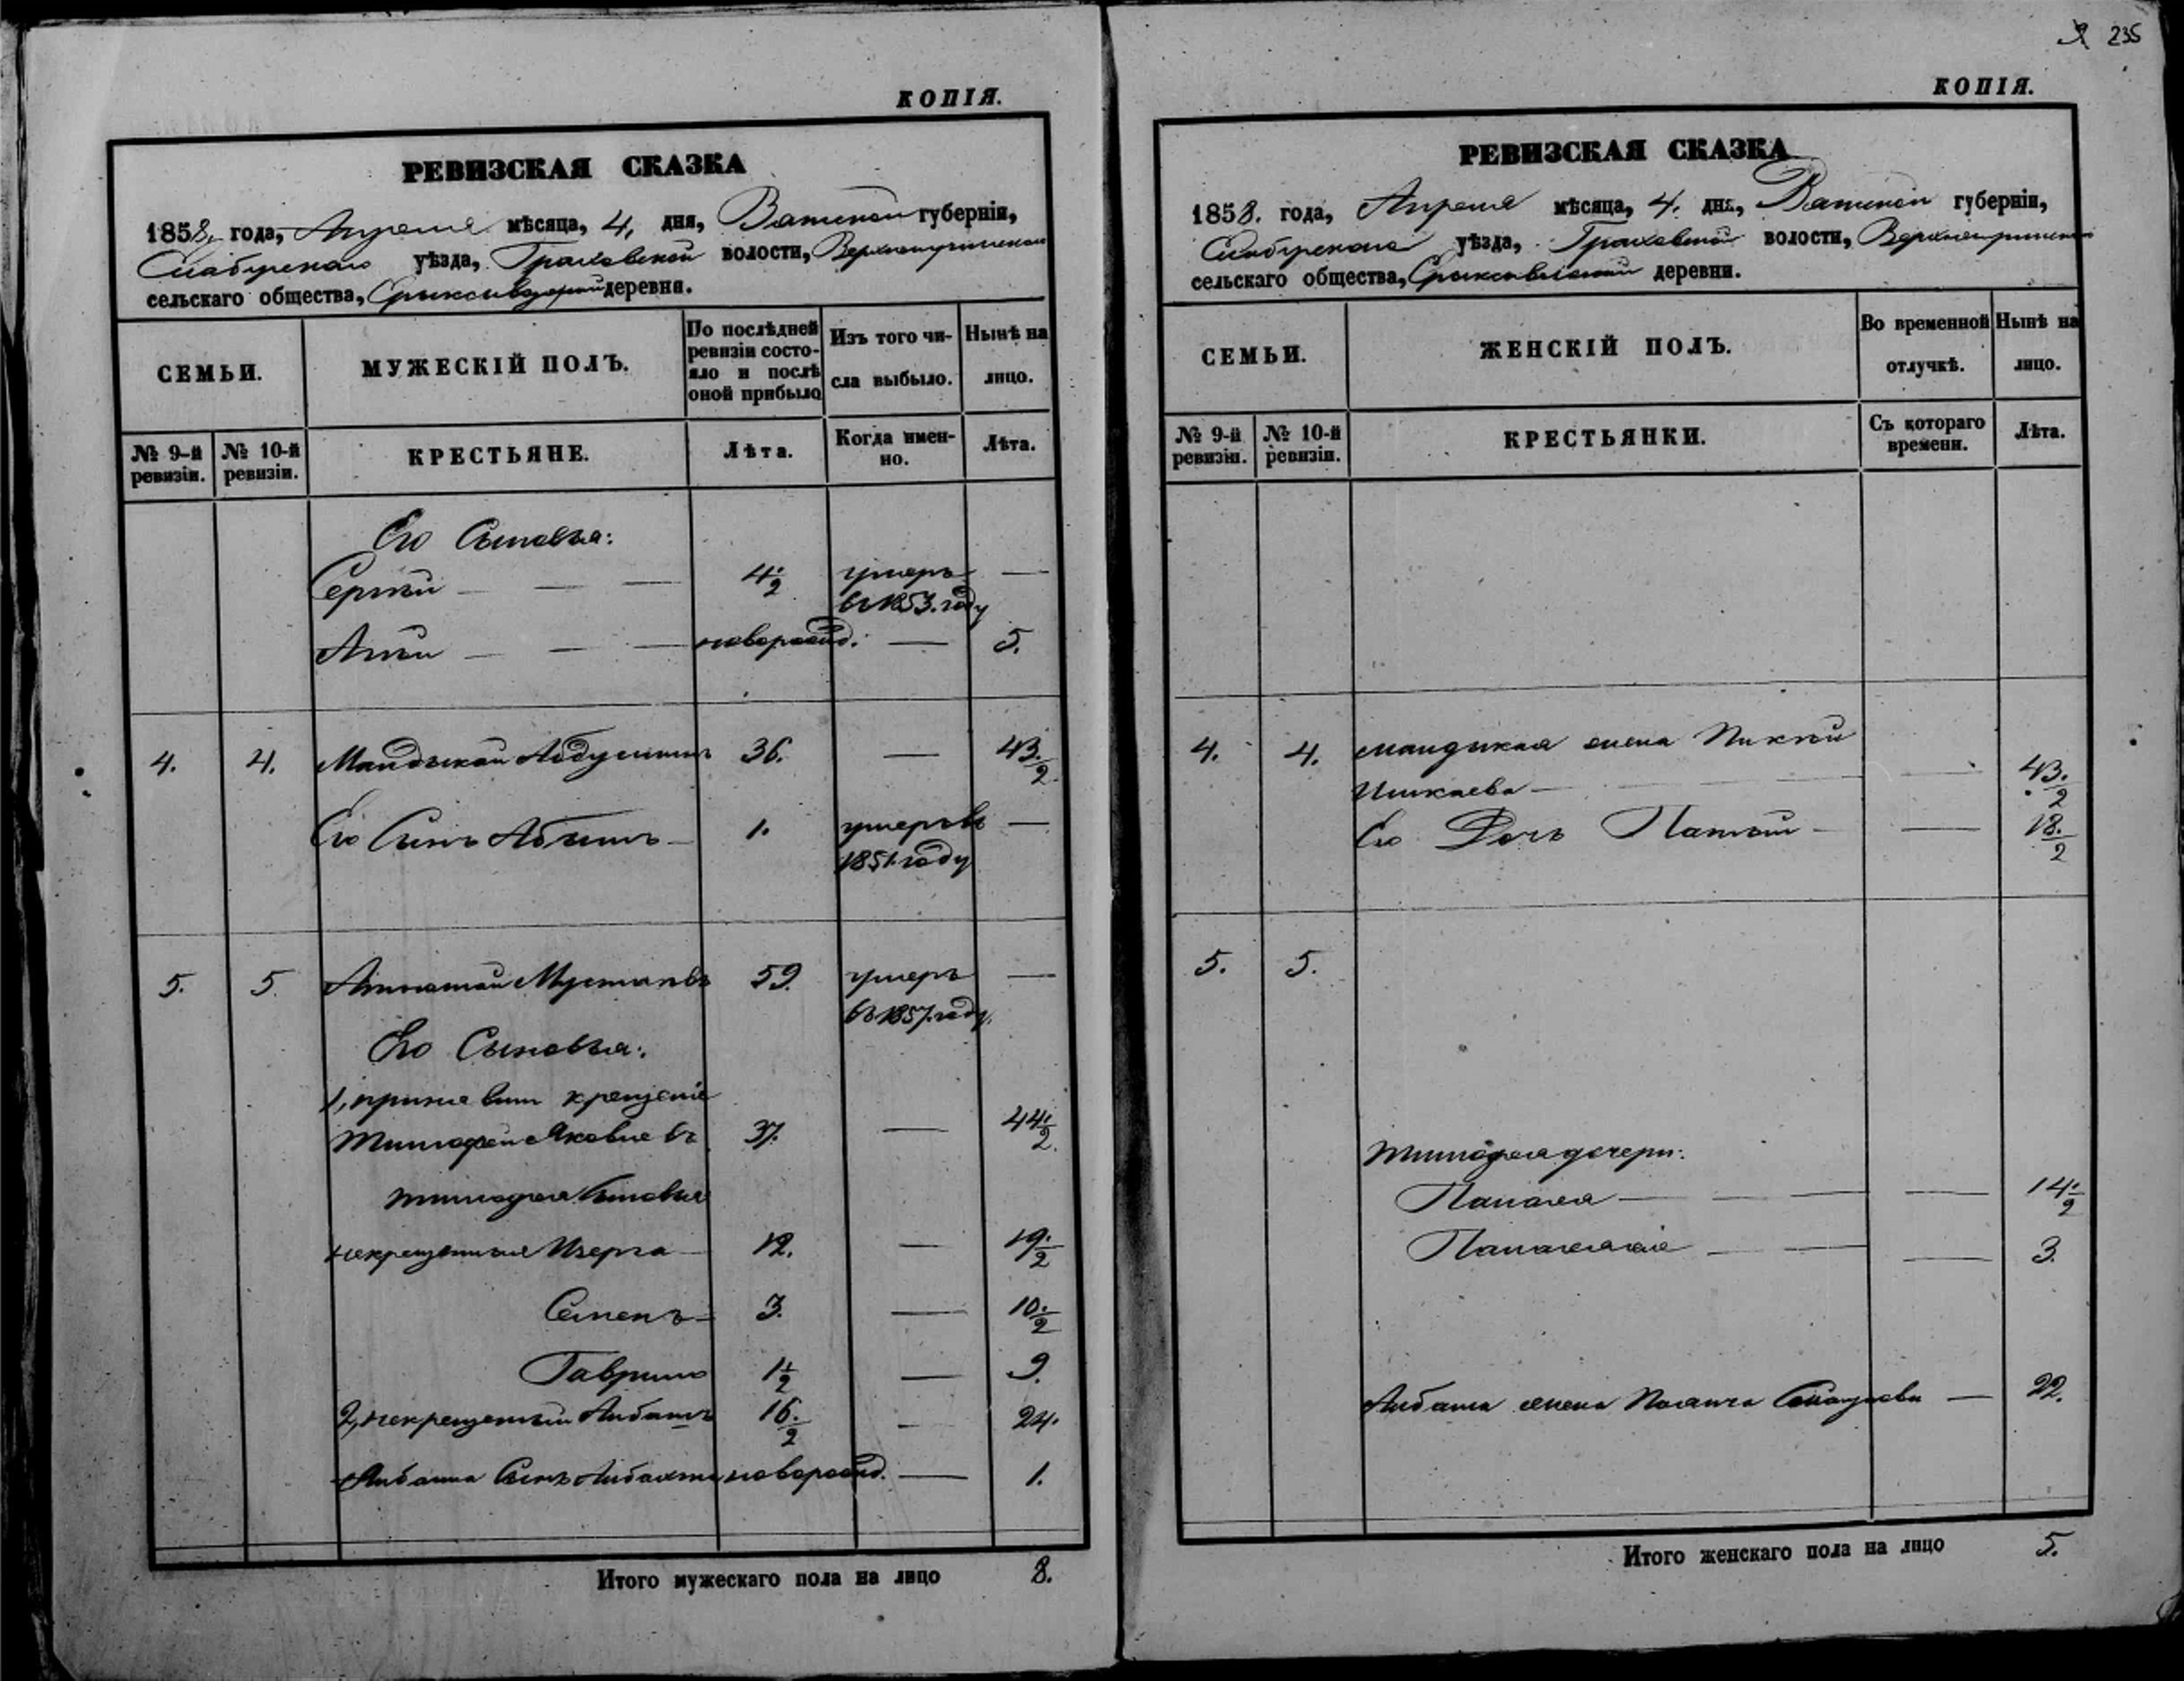 КОПІЯ.
РЕВИЗСКАЯ СКАЗКА
1858, года, Апреля мѣсяца, 4, дня, Вятской губерніи,
Елабужскаго уѣзда, Граховской волости,
сельскаго общества, деревни.
СЕМЬИ.
МУЖЕСКІЙ ПОЛЪ.
По послѣдней ревизіи состо-
яло и послѣ
оной прибыло
Изъ того чи-
сла выбыло.
Нынѣ на
лицо.
№ 9-й
ревизіи.
№ 10-й
ревизіи.
КРЕСТЬЯНЕ.
Лѣта.
Когда имен-
но.
Лѣта.
Его Сыновья:
Сергѣй — — 4 1/2 умеръ —
въ 1853. году
новорожд. — 5.
4. 4. 36. — 43. 1/2
Его Сынъ 1. умеръ въ —
1851. году
5. 5. 59. умеръ —
въ 1857. году.
Его Сыновья:
1, крещеніе
Тимофей Яковлевъ 37. — 44 1/2
Тимофея Сыновья
некрещенныя 12. — 19. 1/2
Семенъ 3. — 10. 1/2
Гаврило 1 1/2 — 9.
2, некрещеный 16. 1/2 — 24.
Сынъ новорожд. — 1.
Итого мужескаго пола на лицо 8.
235
КОПІЯ.
РЕВИЗСКАЯ СКАЗКА
1858. года, Апреля мѣсяца, 4. дня, Вятской губерніи,
Елабужскаго уѣзда, Граховской волости,
сельскаго общества, деревни.
СЕМЬИ.
ЖЕНСКІЙ ПОЛЪ.
Во временной
отлучкѣ.
Нынѣ на
лицо.
№ 9-й
ревизіи.
№ 10-й
ревизіи.
КРЕСТЬЯНКИ.
Съ котораго
времени.
Лѣта.
4. 4. жена
— — 43. 1/2
Его Дочь — — 18. 1/2
5. 5.
Тимофея дочери:
— — 14 1/2
— — 3.
жена — 22.
Итого женскаго пола на лицо 5.